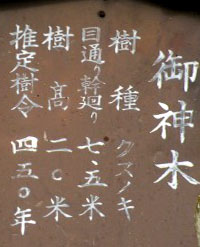 御神木
樹種 クスノキ
目通り幹廻り 七、五米
樹高 二〇米
推定樹令 四五〇年